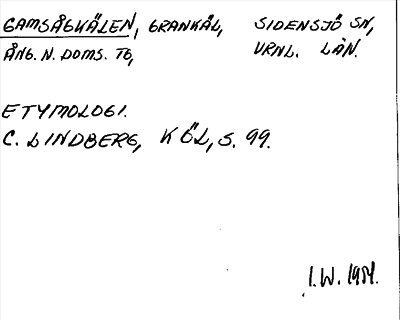 GAMSÅGKÄLEN, GRANKÅL, SIDENSJÖ SN,
ÅNG. N. DOMS. TG, VRNL. LÄN.
ETYMOLOGI.
C. LINDBERG, KÖL, S. 99.
I.W. 1954.